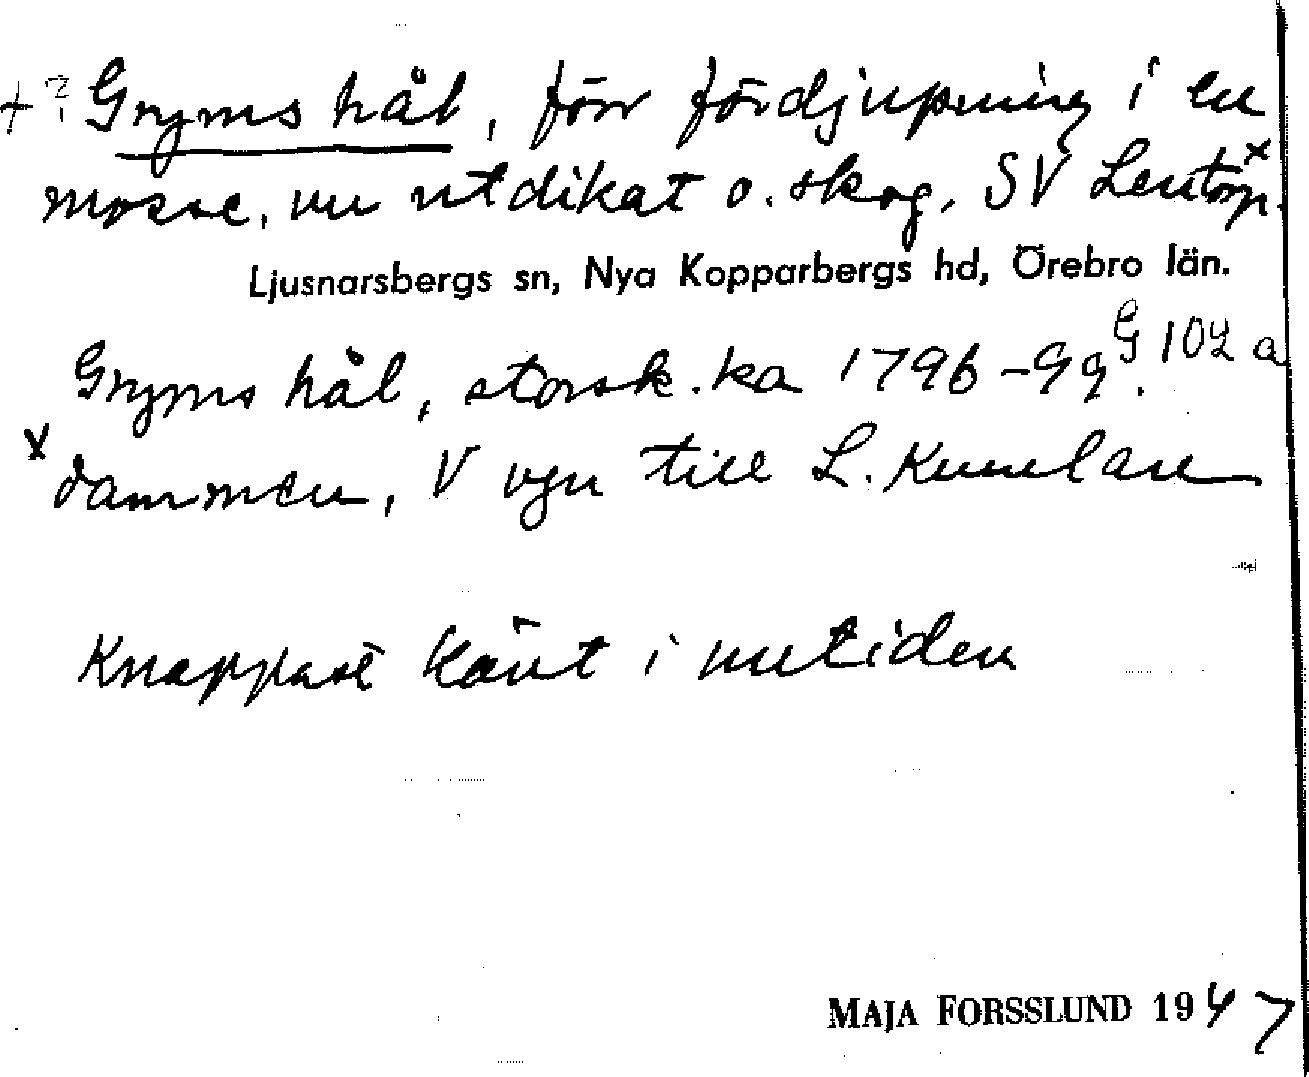 + ? Gryms hål, förr fördjupning i en
mosse, nu utdikat o. skog, SV Lentorp. x
Ljusnarsbergs sn, Nya Kopparbergs hd, Örebro län.
Gryms hål, storsk.ka 1796-99. G 102 a
x dammen, V vgn till L. Kumlan
Knappast känt i nutiden
MAJA FORSSLUND 1947